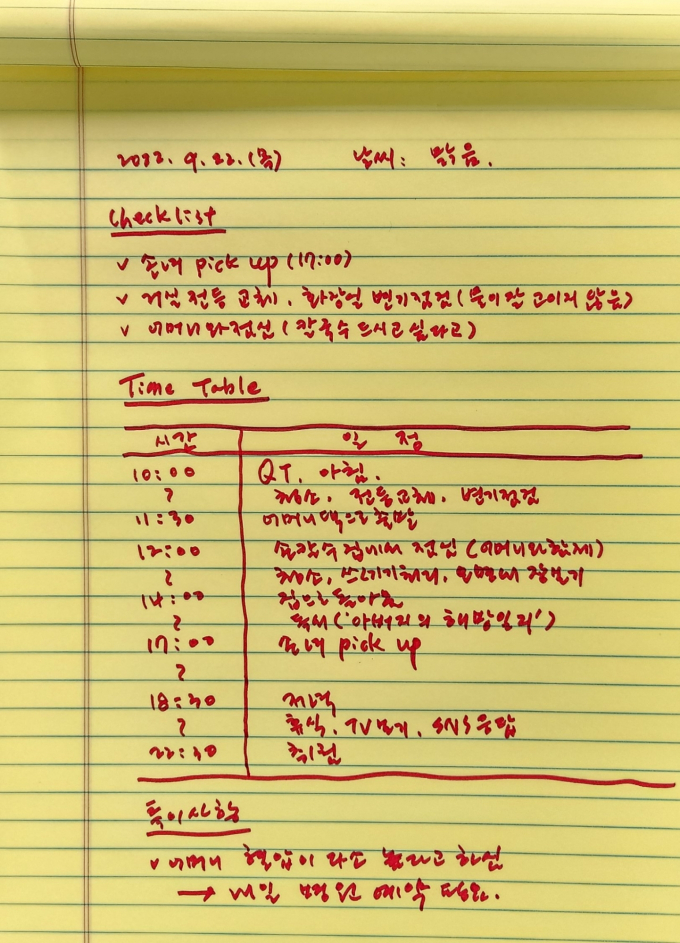 2022. 9. 22. (목) 날씨: 맑음.
Checklist
v 손녀 pick up (17:00)
v 거실 전등 교체, 화장실 변기점검 (물이 잘 고이지 않음)
v 어머니와 점심 (칼국수 드시고 싶다고)
Time Table
시간 일 정
10:00 QT, 아침.
? 청소, 전등교체, 변기점검
11:30 어머니댁으로 출발
12:00 손칼수집에서 점심 (어머니와 함께)
? 청소, 쓰레기처리, 장보기
14:00 집으로 돌아옴
? 독서 ('아버지의 해방일지')
17:00 손녀 pick up
?
18:30 저녁
? 휴식, TV보기, SNS응답
22:30 취침
특이사항
v 어머니 혈압이 다소 높다고 하심
→ 내일 병원 예약 필요.